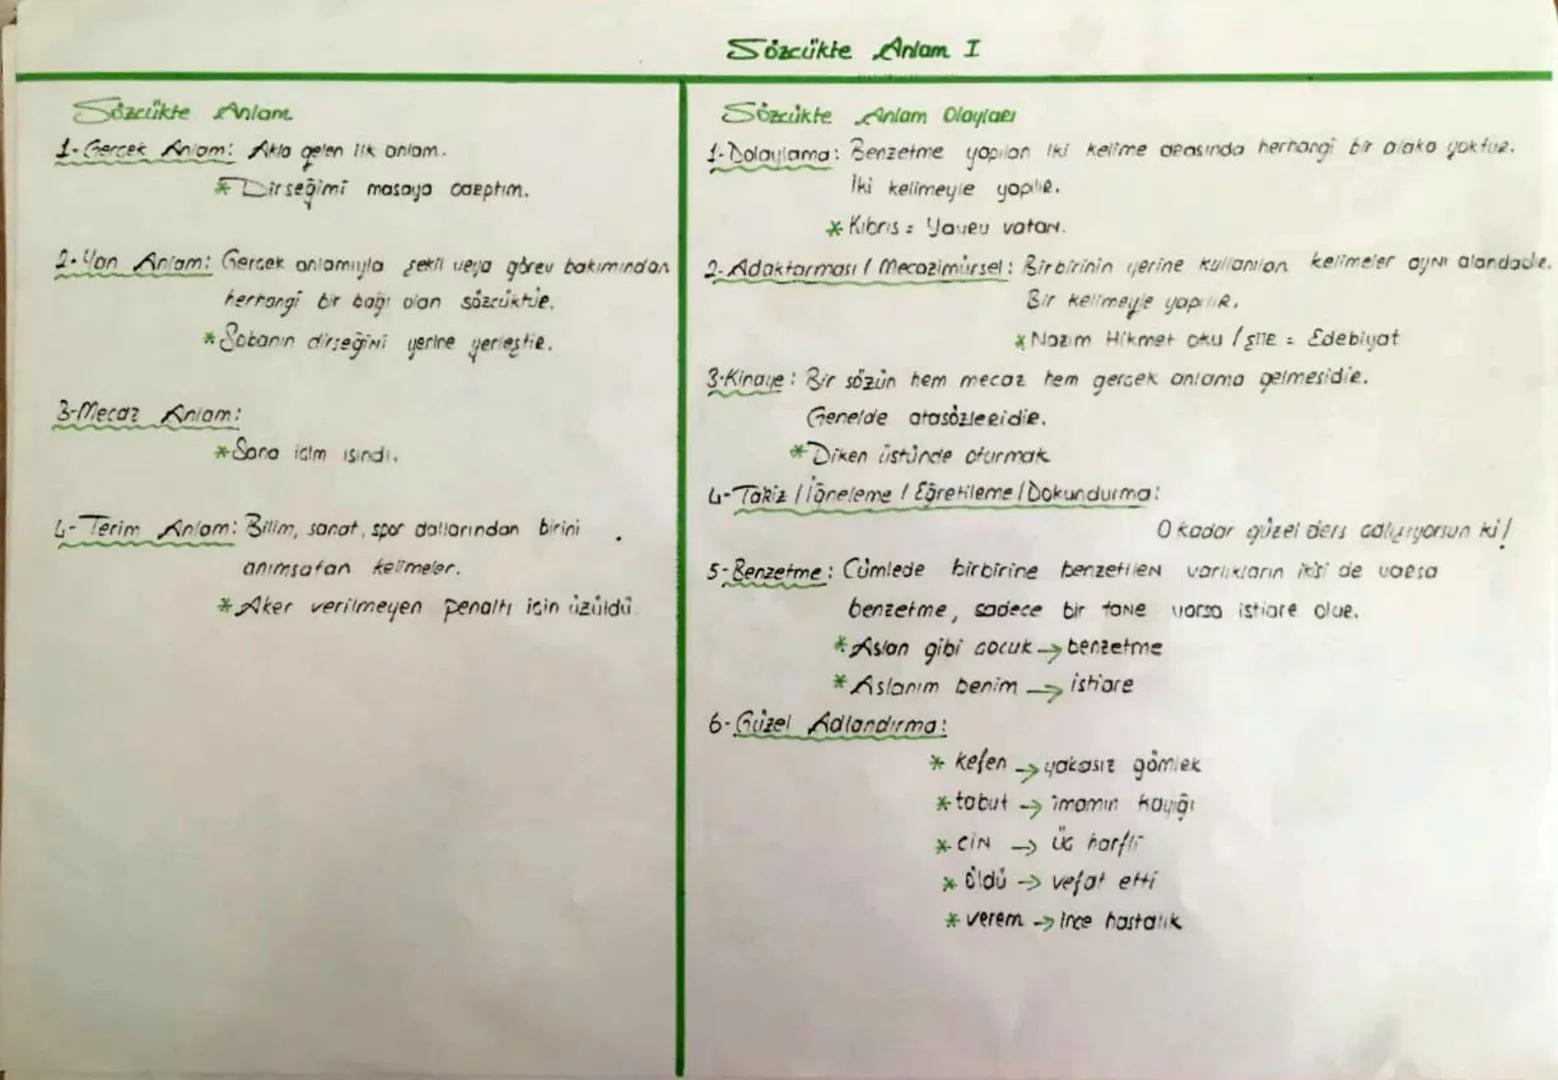 Sözcükte Anlam I
Sözcükte Anlam
1- Gerçek Anlam: Akla gelen ilk anlam.
* Dirseğimi masaya çarptım.
2- Yan Anlam: Gerçek anlamıyla şekil veya görev bakımından
herhangi bir bağı olan sözcüktür.
* Sobanın dirseğini yerine yerleştir.
3- Mecaz Anlam:
* Sana içim ısındı.
4- Terim Anlam: Bilim, sanat, spor dallarından birini
anımsatan kelimeler.
* Aker verilmeyen penaltı için üzüldü
Sözcükte Anlam Olayları
1- Dolaylama: Benzetme yapılan iki kelime arasında herhangi bir alaka yoktur.
İki kelimeyle yapılır.
* Kıbrıs = Yavru vatan.
2- Adaktarması / Mecazimürsel: Birbirinin yerine kullanılan kelimeler aynı alandadır.
Bir kelimeyle yapılır.
* Nazım Hikmet oku / şiir = Edebiyat
3- Kinaye: Bir sözün hem mecaz hem gerçek anlama gelmesidir.
Genelde atasözleridir.
* Diken üstünde oturmak
4- Tariz / İğneleme / Eğretileme / Dokundurma:
O kadar güzel ders çalışıyorsun ki!
5- Benzetme: Cümlede birbirine benzetilen varlıkların ikisi de varsa
benzetme, sadece bir tane varsa istiare olur.
* Aslan gibi çocuk → benzetme
* Aslanım benim → istiare
6- Güzel Adlandırma:
* kefen → yakasız gömlek
* tabut → imamın kayığı
* cin → üç harfli
* öldü → vefat etti
* verem → ince hastalık